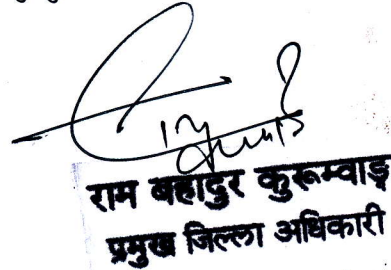 राम बहादुर कुरूम्वाङ्
प्रमुख जिल्ला अधिकारी